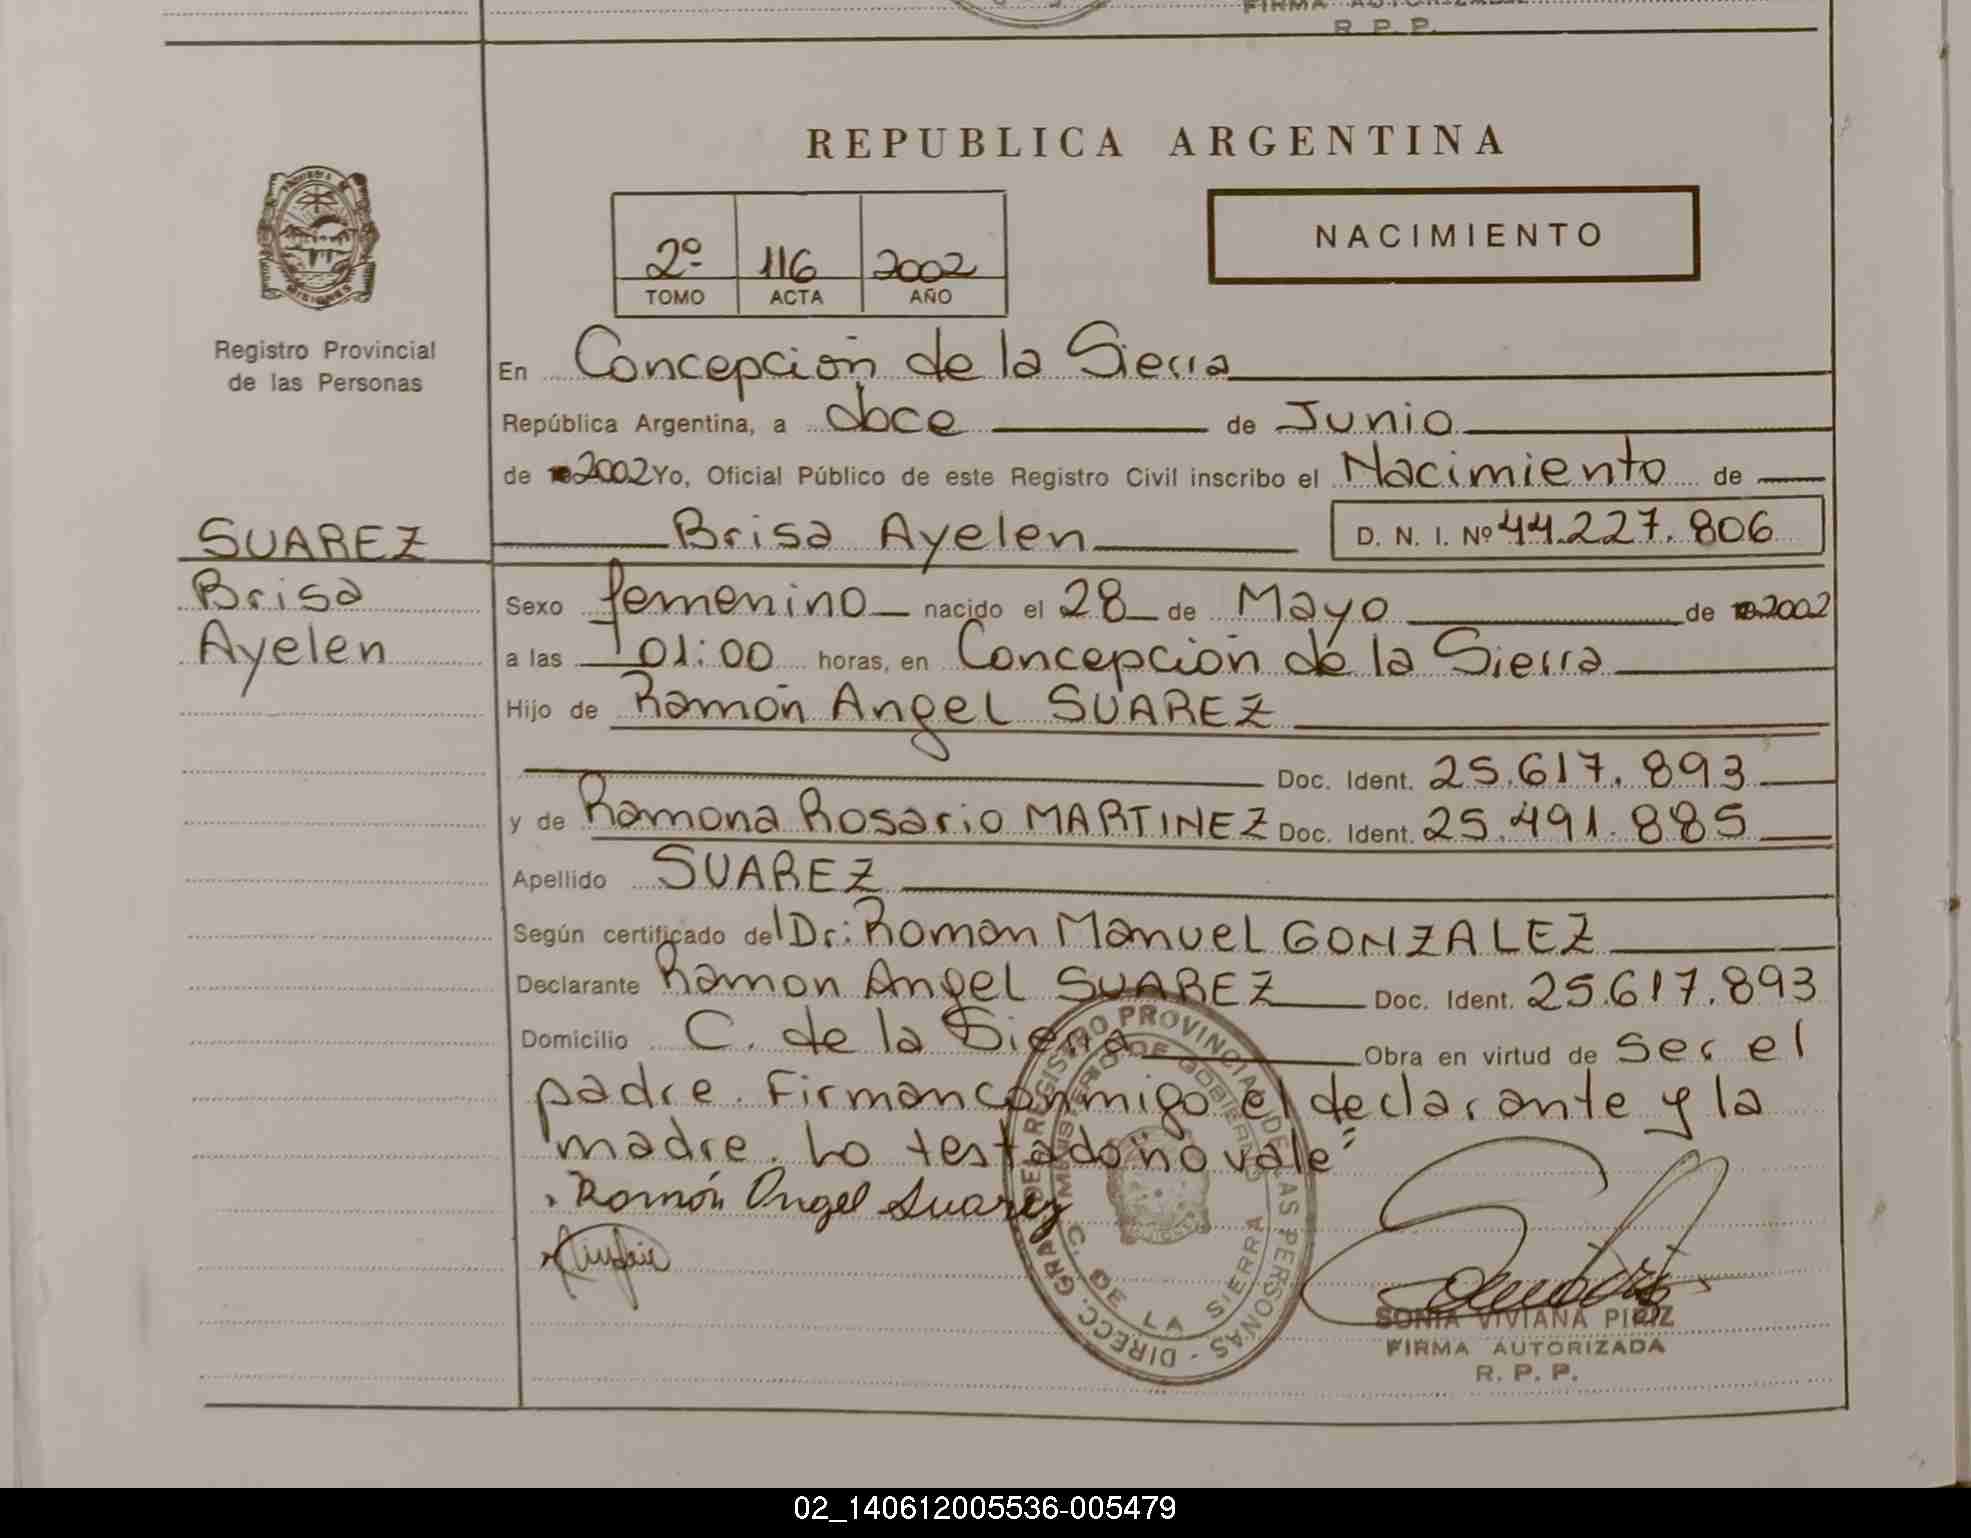 FIRMA AUTORIZADA
R. P. P.
REPUBLICA ARGENTINA
NACIMIENTO
2º 116 2002
TOMO ACTA AÑO
MISIONES
Registro Provincial
de las Personas
En Concepción de la Sierra
República Argentina, a doce de Junio
de 2002 Yo, Oficial Público de este Registro Civil inscribo el Nacimiento de
SUAREZ
Brisa Ayelen D. N. I. Nº 44.227.806
Brisa
Sexo femenino nacido el 28 de Mayo de 2002
Ayelen
a las 01:00 horas, en Concepción de la Sierra
Hijo de Ramón Angel SUAREZ
Doc. Ident. 25.617.893
y de Ramona Rosario MARTINEZ Doc. Ident. 25.491.885
Apellido SUAREZ
Según certificado del Dr: Roman Manuel GONZALEZ
Declarante Ramon Angel SUAREZ Doc. Ident. 25.617.893
Domicilio C. de la Sierra Obra en virtud de ser el
padre. Firman conmigo el declarante y la
madre. Lo testado "no vale"
Ramón Angel Suarez
DIRECC. GRAL. DEL REGISTRO PROVINCIAL DE LAS PERSONAS -
MINISTERIO DE GOBIERNO
C. DE LA SIERRA
SONIA VIVIANA PIRIZ
FIRMA AUTORIZADA
R. P. P.
02_140612005536-005479